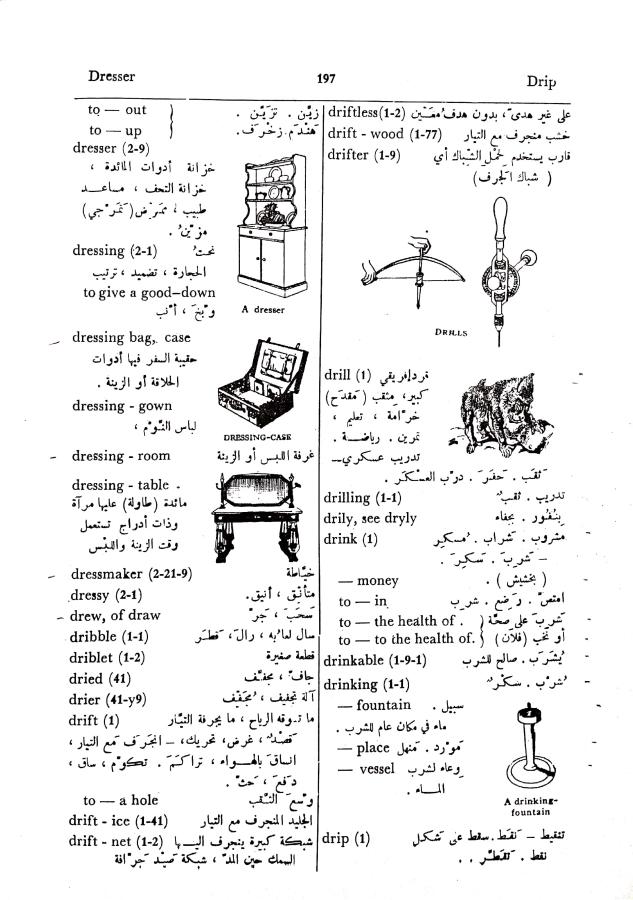 Dresser
197
Drip
to — out زيّن . تزيّن .
to — up هندَم . زخرَف .
dresser (2-9)
خزانة أدوات المائدة ،
خزانة التحف ، مساعد
طبيب ، ممرّض (تمرجي)
مزيّن .
A dresser
dressing (2-1) نحتُ
الحجارة ، تضميد ، ترتيب
to give a good–down
وبّخ ، أنّب
dressing bag, case
حقيبة السفر فيها أدوات
الحلاقة أو الزينة .
DRESSING-CASE
dressing - gown
لباس النوم ،
dressing - room غرفة اللبس أو الزينة
dressing - table .
مائدة (طاولة) عليها مرآة
وذات أدراج تستعمل
وقت الزينة واللبس
dressmaker (2-21-9) خيّاطة
dressy (2-1) متأنّق ، أنيق .
drew, of draw سَحَبَ ، جرّ
dribble (1-1) سال لعابه ، رالَ ، قطَر
driblet (1-2) قطعة صغيرة
dried (41) جافّ ، مجفّف
drier (41-y9) آلة تجفيف ، مُجَفّف
drift (1) ما تسوقه الرياح ، ما يجرفة التيّار
قصْدٌ ، غرض ، تحريك ، – انجرَف مع التيار ،
انساق بالهواء ، تراكمَ . تكوّم ، ساق ،
دفعَ ، حثّ .
to — a hole وسّع الثقب
drift - ice (1-41) الجليد المنجرف مع التيار
drift - net (1-2) شبكة كبيرة ينجرف اليها
السمك حين المدّ ، شبكة صيد جرّافة
driftless (1-2) على غير هدىً ، بدون هدف مُعَيّن
drift - wood (1-77) خشب منجرف مع التيار
drifter (1-9) قارب يستخدم لحمْل الشباك أي
( شباك الجرف )
DRILLS
drill (1) قرد إفريقي
كبير ، مثقب (مقدَح)
خرّامة ، تعليم ،
تمرين . رياضة .
تدريب عسكري–
ثقَب . حفَرَ . درّب العسكَر .
drilling (1-1) تدريب . ثقبٌ
drily, see dryly بنُفور . بجفاء
drink (1) مشروب . شراب . مُسكِر
– شرِبَ . سَكِرَ .
— money ( بخشيش ) .
to — in امتصّ . رضع . شرب
to — the health of . شرِبَ على صحّة (
to — to the health of . أو نخْب (فلان)
drinkable (1-9-1) يُشرَب . صالح للشرب
drinking (1-1) شُرْب . سكْرٌ
— fountain سبيل .
ماء في مكان عام للشرب .
— place مَورد . منهل
— vessel وعاء لشرب
الماء .
A drinking-
fountain
drip (1) تنقيط – نقَط . سقط على شكل
نقط . تقطّر . .